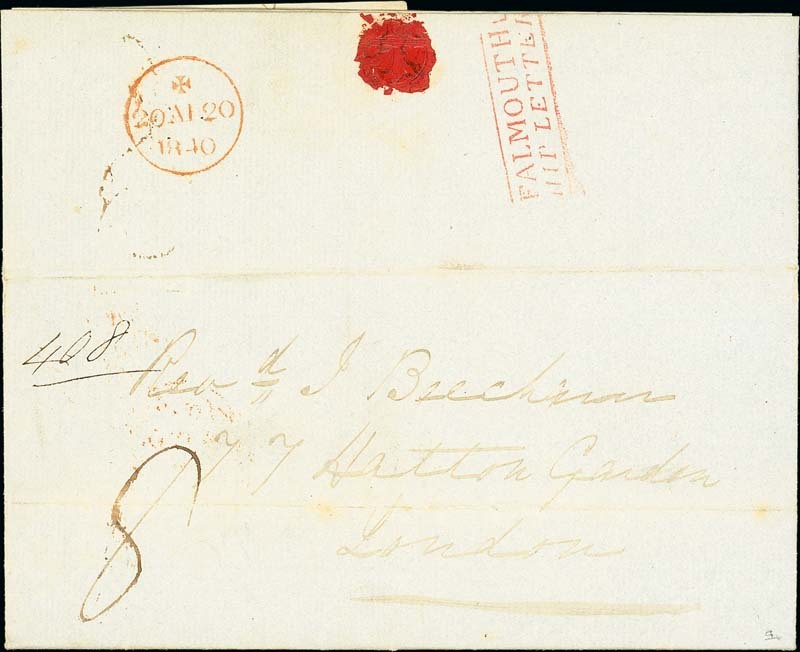 20 AU 20
1840
FALMOUTH
HIP LETTER
408
Revd J Beecham
77 Hatton Garden
London
8